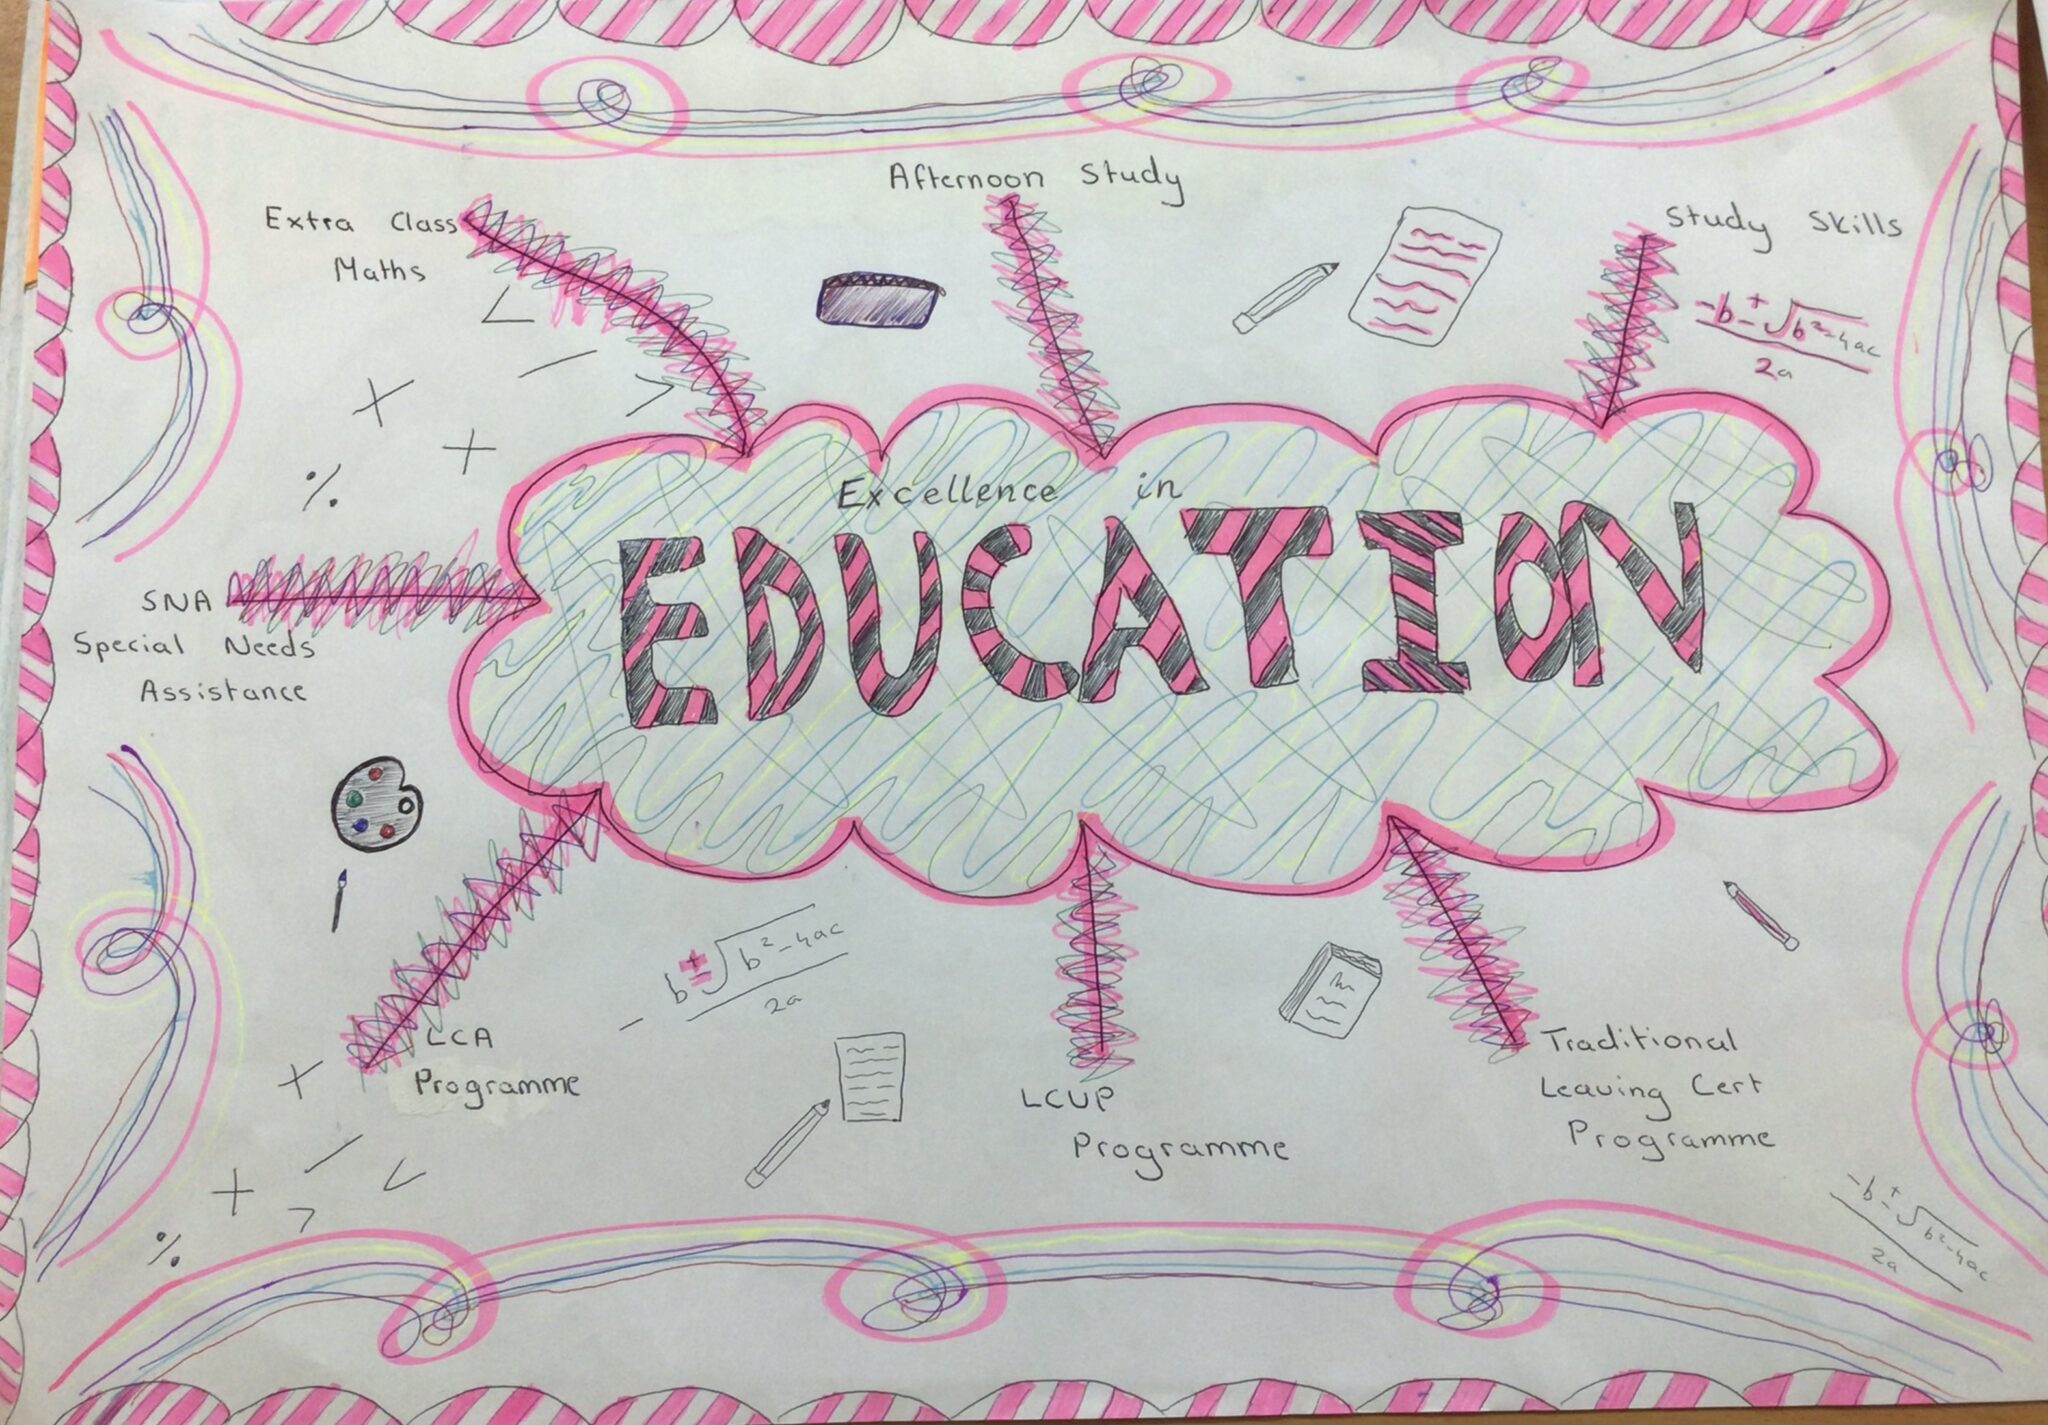 Afternoon Study
Extra Class
Maths
Study Skills
-b ± √b²-4ac
2a
<
-
>
×
+
%
Excellence in
EDUCATION
SNA
Special Needs
Assistance
-b ± √b²-4ac
2a
LCA
Programme
LCUP
Programme
Traditional
Leaving Cert
Programme
+
-
<
+
>
%
-b ± √b²-4ac
2a